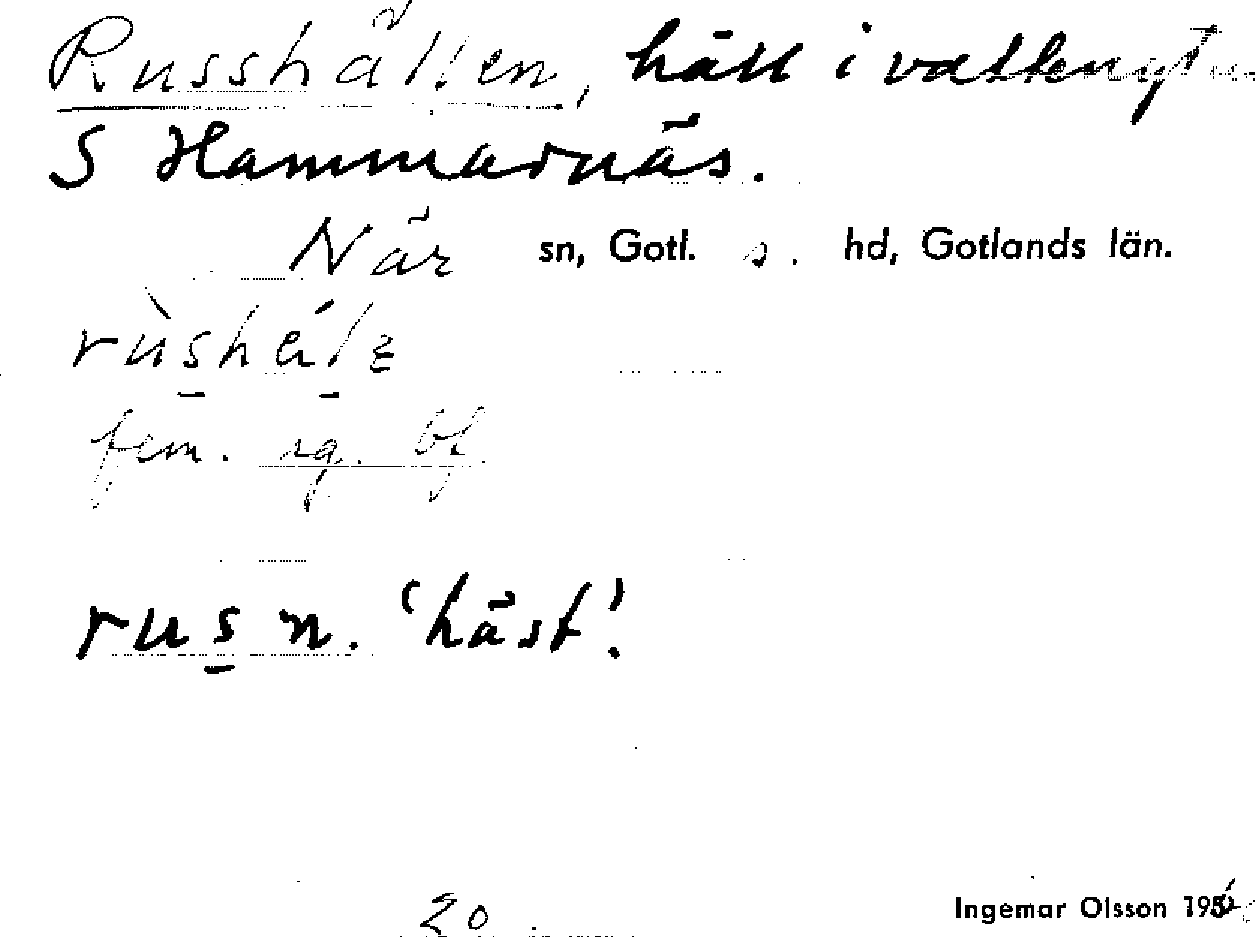 Russhällen, häll i vattenytan
S Hammarnäs.
När sn, Gotl. s. hd, Gotlands län.
rùshálɛ
fem. sg. bf
rus n. 'häst'.
20. Ingemar Olsson